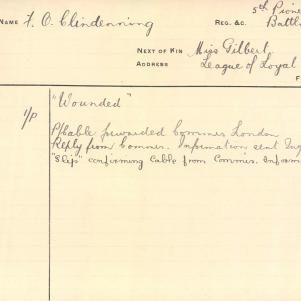 NAME F. O. Clindenning REG. &C. 5th Pione
Battl
NEXT OF KIN Miss Gilbert
ADDRESS League of Loyal
F
1/P "Wounded"
P/Cable forwarded Commis London
Reply from Commis. Information sent
"Slip" confirming Cable from Commis. Inform